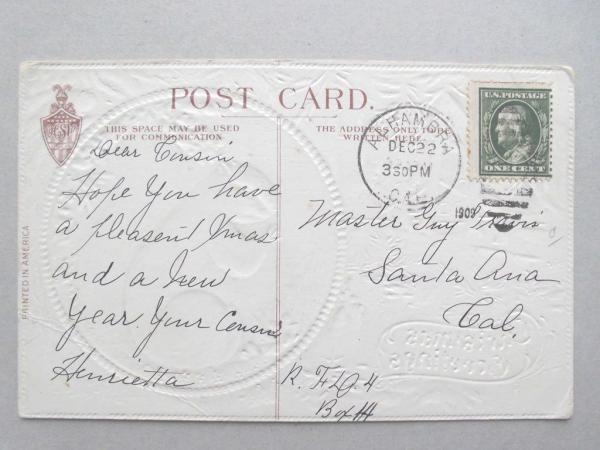 POST CARD.
THIS SPACE MAY BE USED
FOR COMMUNICATION
THE ADDRESS ONLY TO BE
WRITTEN HERE.
ALHAMBRA
DEC 22
330PM
CAL.
1909
U.S. POSTAGE
ONE CENT
PRINTED IN AMERICA
Dear Cousin
Hope You have
a pleasent Xmas
and a New
Year. Your Cousin
Henrietta
Master Guy
Santa Ana
Cal.
R.F.D. 4
Box
Christmas
Greetings